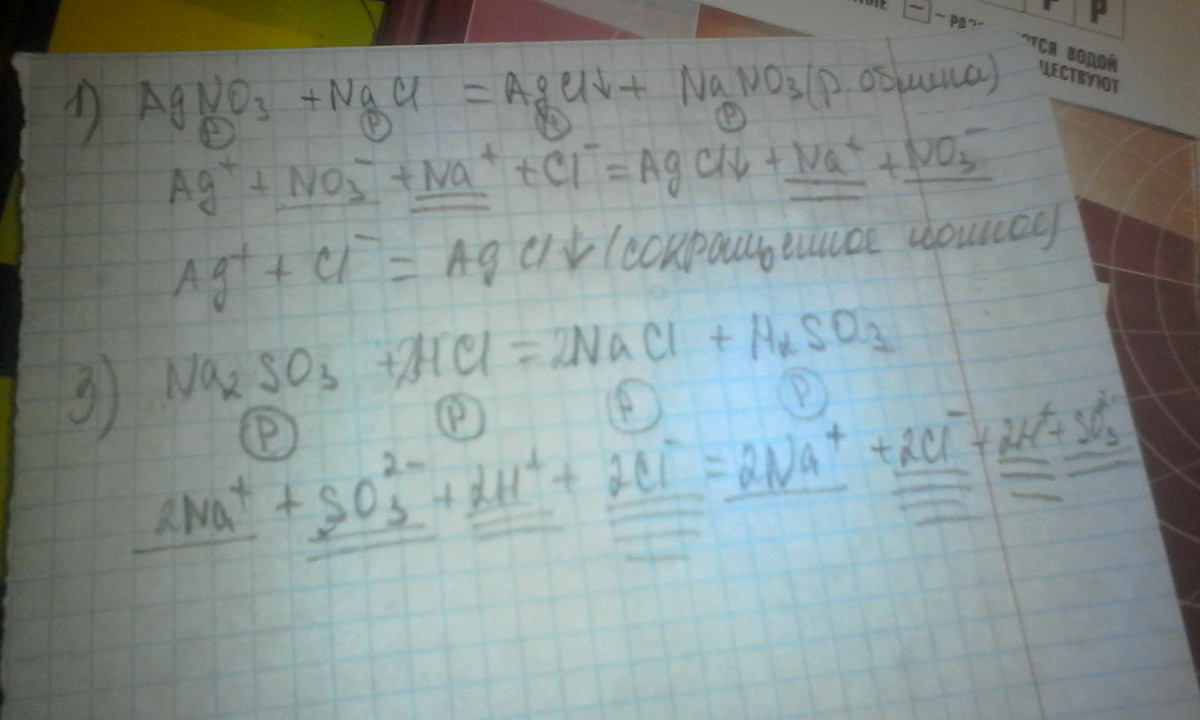 НЫЕ – РАЗ
Р Р
ТСЯ ВОДОЙ
ЩЕСТВУЮТ
1) AgNO₃ + NaCl = AgCl↓ + NaNO₃ (р. обмена)
Р Р Н Р
Ag⁺ + NO₃⁻ + Na⁺ + Cl⁻ = AgCl↓ + Na⁺ + NO₃⁻
Ag⁺ + Cl⁻ = AgCl↓ (сокращенное ионное)
3) Na₂SO₃ + 2HCl = 2NaCl + H₂SO₃
Р Р Р Р
2Na⁺ + SO₃²⁻ + 2H⁺ + 2Cl⁻ = 2Na⁺ + 2Cl⁻ + 2H⁺ + SO₃²⁻